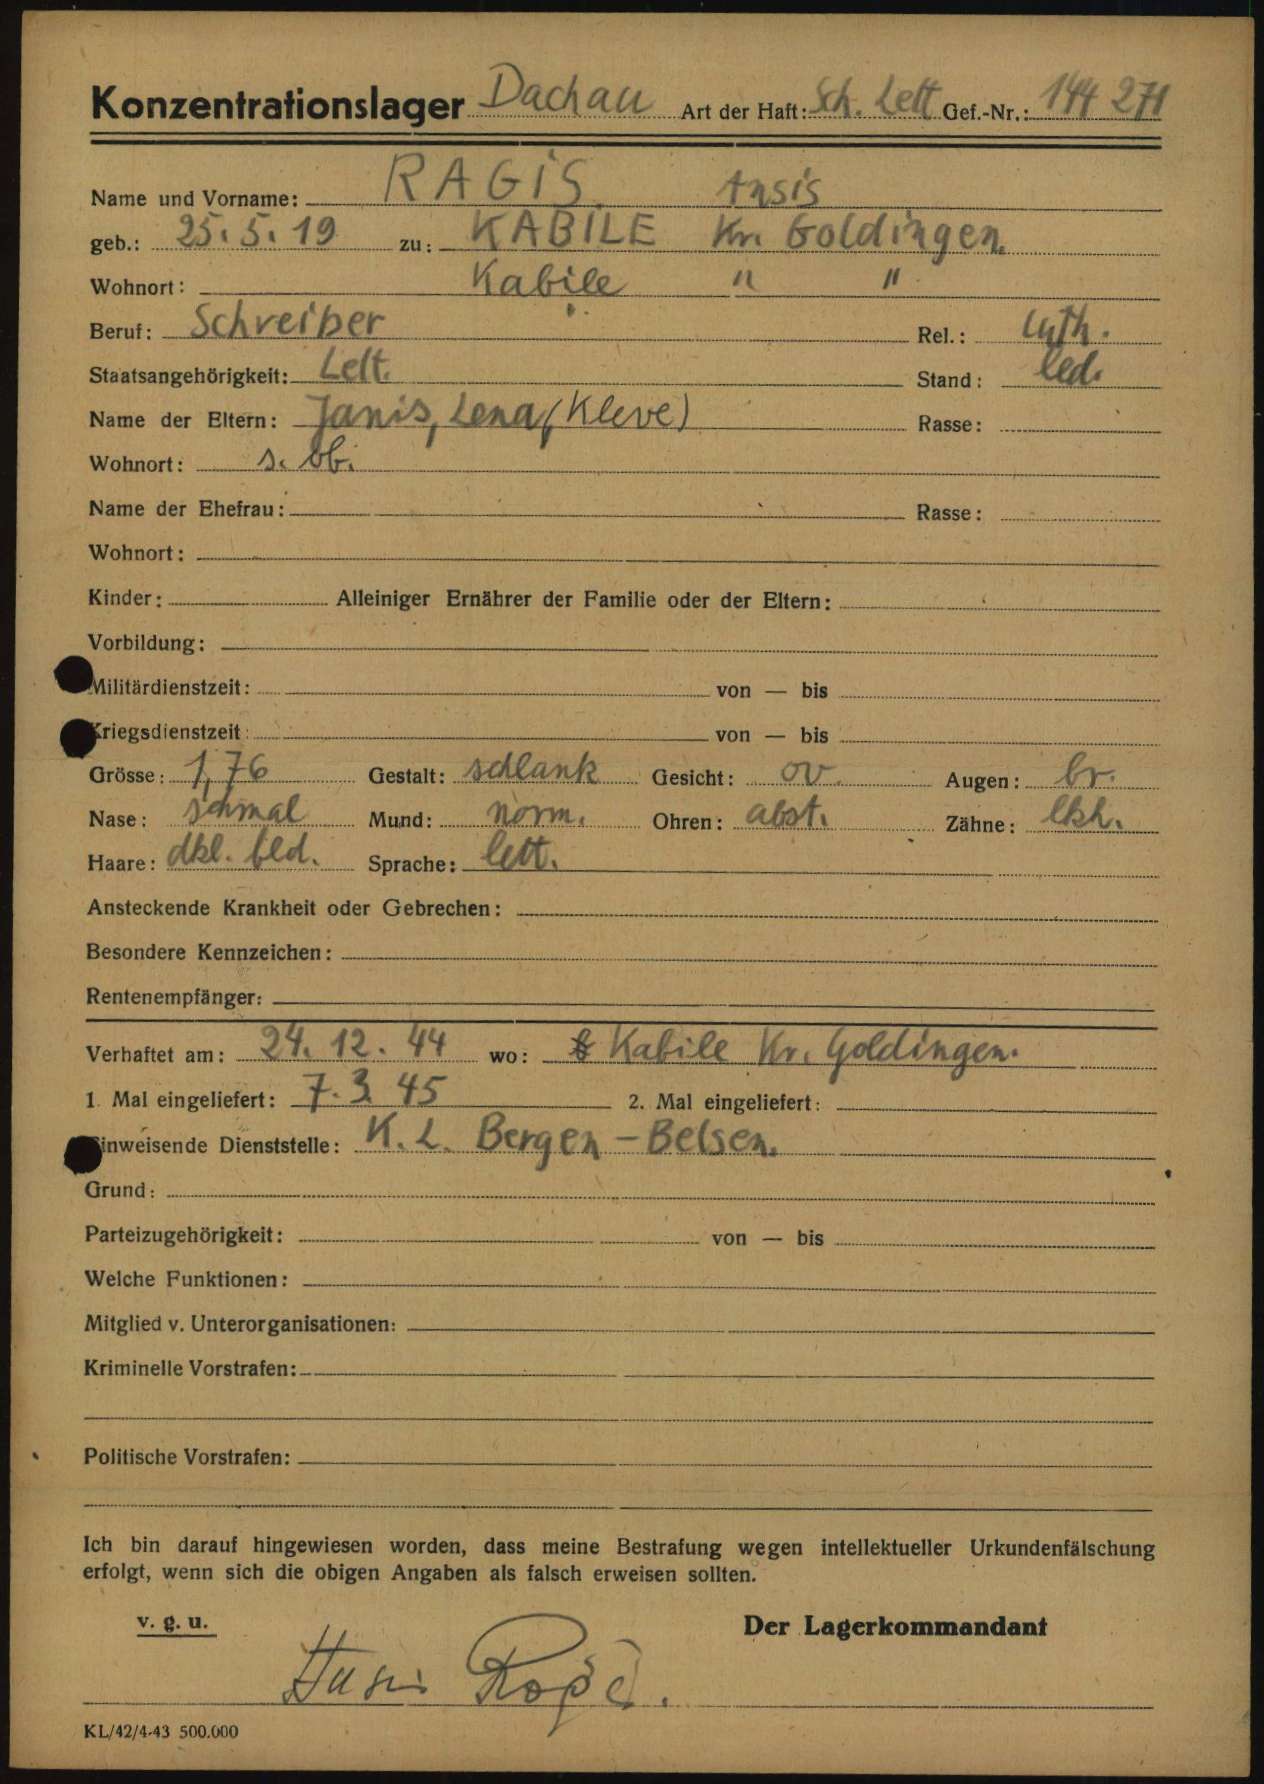 Konzentrationslager Dachau Art der Haft: Sch. Lett Gef.-Nr.: 144 271
Name und Vorname: RAGIS. Ansis
geb.: 25. 5. 19 zu: KABILE Kr. Goldingen.
Wohnort: Kabile " "
Beruf: Schreiber Rel.: luth.
Staatsangehörigkeit: Lett. Stand: led.
Name der Eltern: Janis, Lena, (Kleve) Rasse:
Wohnort: s. ob.
Name der Ehefrau: Rasse:
Wohnort:
Kinder: Alleiniger Ernährer der Familie oder der Eltern:
Vorbildung:
Militärdienstzeit: von — bis
Kriegsdienstzeit: von — bis
Grösse: 1,76 Gestalt: schlank Gesicht: ov. Augen: br.
Nase: schmal Mund: norm. Ohren: abst. Zähne: lkh.
Haare: dkl. bld. Sprache: lett.
Ansteckende Krankheit oder Gebrechen:
Besondere Kennzeichen:
Rentenempfänger:
Verhaftet am: 24. 12. 44 wo: Kabile Kr. Goldingen.
1. Mal eingeliefert: 7. 3. 45 2. Mal eingeliefert:
Einweisende Dienststelle: K. L. Bergen - Belsen.
Grund:
Parteizugehörigkeit: von — bis
Welche Funktionen:
Mitglied v. Unterorganisationen:
Kriminelle Vorstrafen:
Politische Vorstrafen:
Ich bin darauf hingewiesen worden, dass meine Bestrafung wegen intellektueller Urkundenfälschung
erfolgt, wenn sich die obigen Angaben als falsch erweisen sollten.
v. g. u. Der Lagerkommandant
KL/42/4-43 500.000